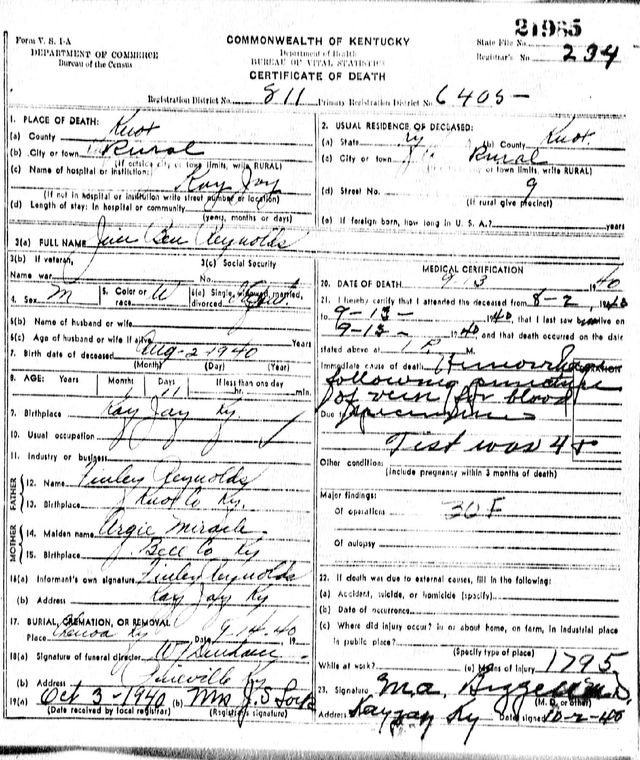 21985
Form V. S. 1-A
DEPARTMENT OF COMMERCE
Bureau of the Census
COMMONWEALTH OF KENTUCKY
Department of Health
BUREAU OF VITAL STATISTICS
CERTIFICATE OF DEATH
State File No.
Registrar's No. 234
Registration District No. 811 Primary Registration District No. 6405-
1. PLACE OF DEATH:
(a) County Knox
(b) City or town Rural
(If outside city or town limits, write RURAL)
(c) Name of hospital or institution:
Kay Jay
(If not in hospital or institution write street number or location)
(d) Length of stay: In hospital or community
(years, months or days)
2. USUAL RESIDENCE OF DECEASED:
(a) State Ky (b) County Knox
(c) City or town Rural
(If outside city or town limits, write RURAL)
(d) Street No. 9
(If rural give precinct)
(e) If foreign born, how long in U. S. A.? years
3(a) FULL NAME Ben Reynolds
3(b) If veteran, 3(c) Social Security
Name war No.
4. Sex M 5. Color or race W 6(a) Single, widowed, married, divorced
6(b) Name of husband or wife
6(c) Age of husband or wife if alive
7. Birth date of deceased Aug-2-1940
(Month) (Day) (Year)
8. AGE: Years Months Days If less than one day
1 11 hr. min.
9. Birthplace Kay Jay Ky
10. Usual occupation
11. Industry or business
FATHER
12. Name Finley Reynolds
13. Birthplace Knox Co Ky.
MOTHER
14. Maiden name Argie Miracle
15. Birthplace Bell Co Ky
16(a) Informant's own signature Finley Reynolds
(b) Address Kay Jay Ky
17. BURIAL, CREMATION, OR REMOVAL
Place Chenoa Ky Date 9-14-40 19
18(a) Signature of funeral director
(b) Address Pineville Ky
19(a) Oct 3-1940 (b) Mrs J. S.
(Date received by local registrar) (Registrar's signature)
MEDICAL CERTIFICATION
20. DATE OF DEATH 9 13 1940
21. I hereby certify that I attended the deceased from 8-2 1940
to 9-13- 1940, that I last saw alive on
9-13- 1940 and that death occurred on the date
stated above at 1 P. M.
Immediate cause of death Hemorrhage
following puncture
of vein for blood
Due to specimen
Test was 4+
Other condition:
(Include pregnancy within 3 months of death)
Major findings:
Of operations 30 F
Of autopsy
22. If death was due to external causes, fill in the following:
(a) Accident, suicide, or homicide (specify)
(b) Date of occurrence
(c) Where did injury occur? In or about home, on farm, in industrial place
in public place?
(Specify type of place)
While at work? (e) Means of Injury 1795
23. Signature M.D.
(M. D. or other)
Address Kayjay Ky Date signed 10-2-40